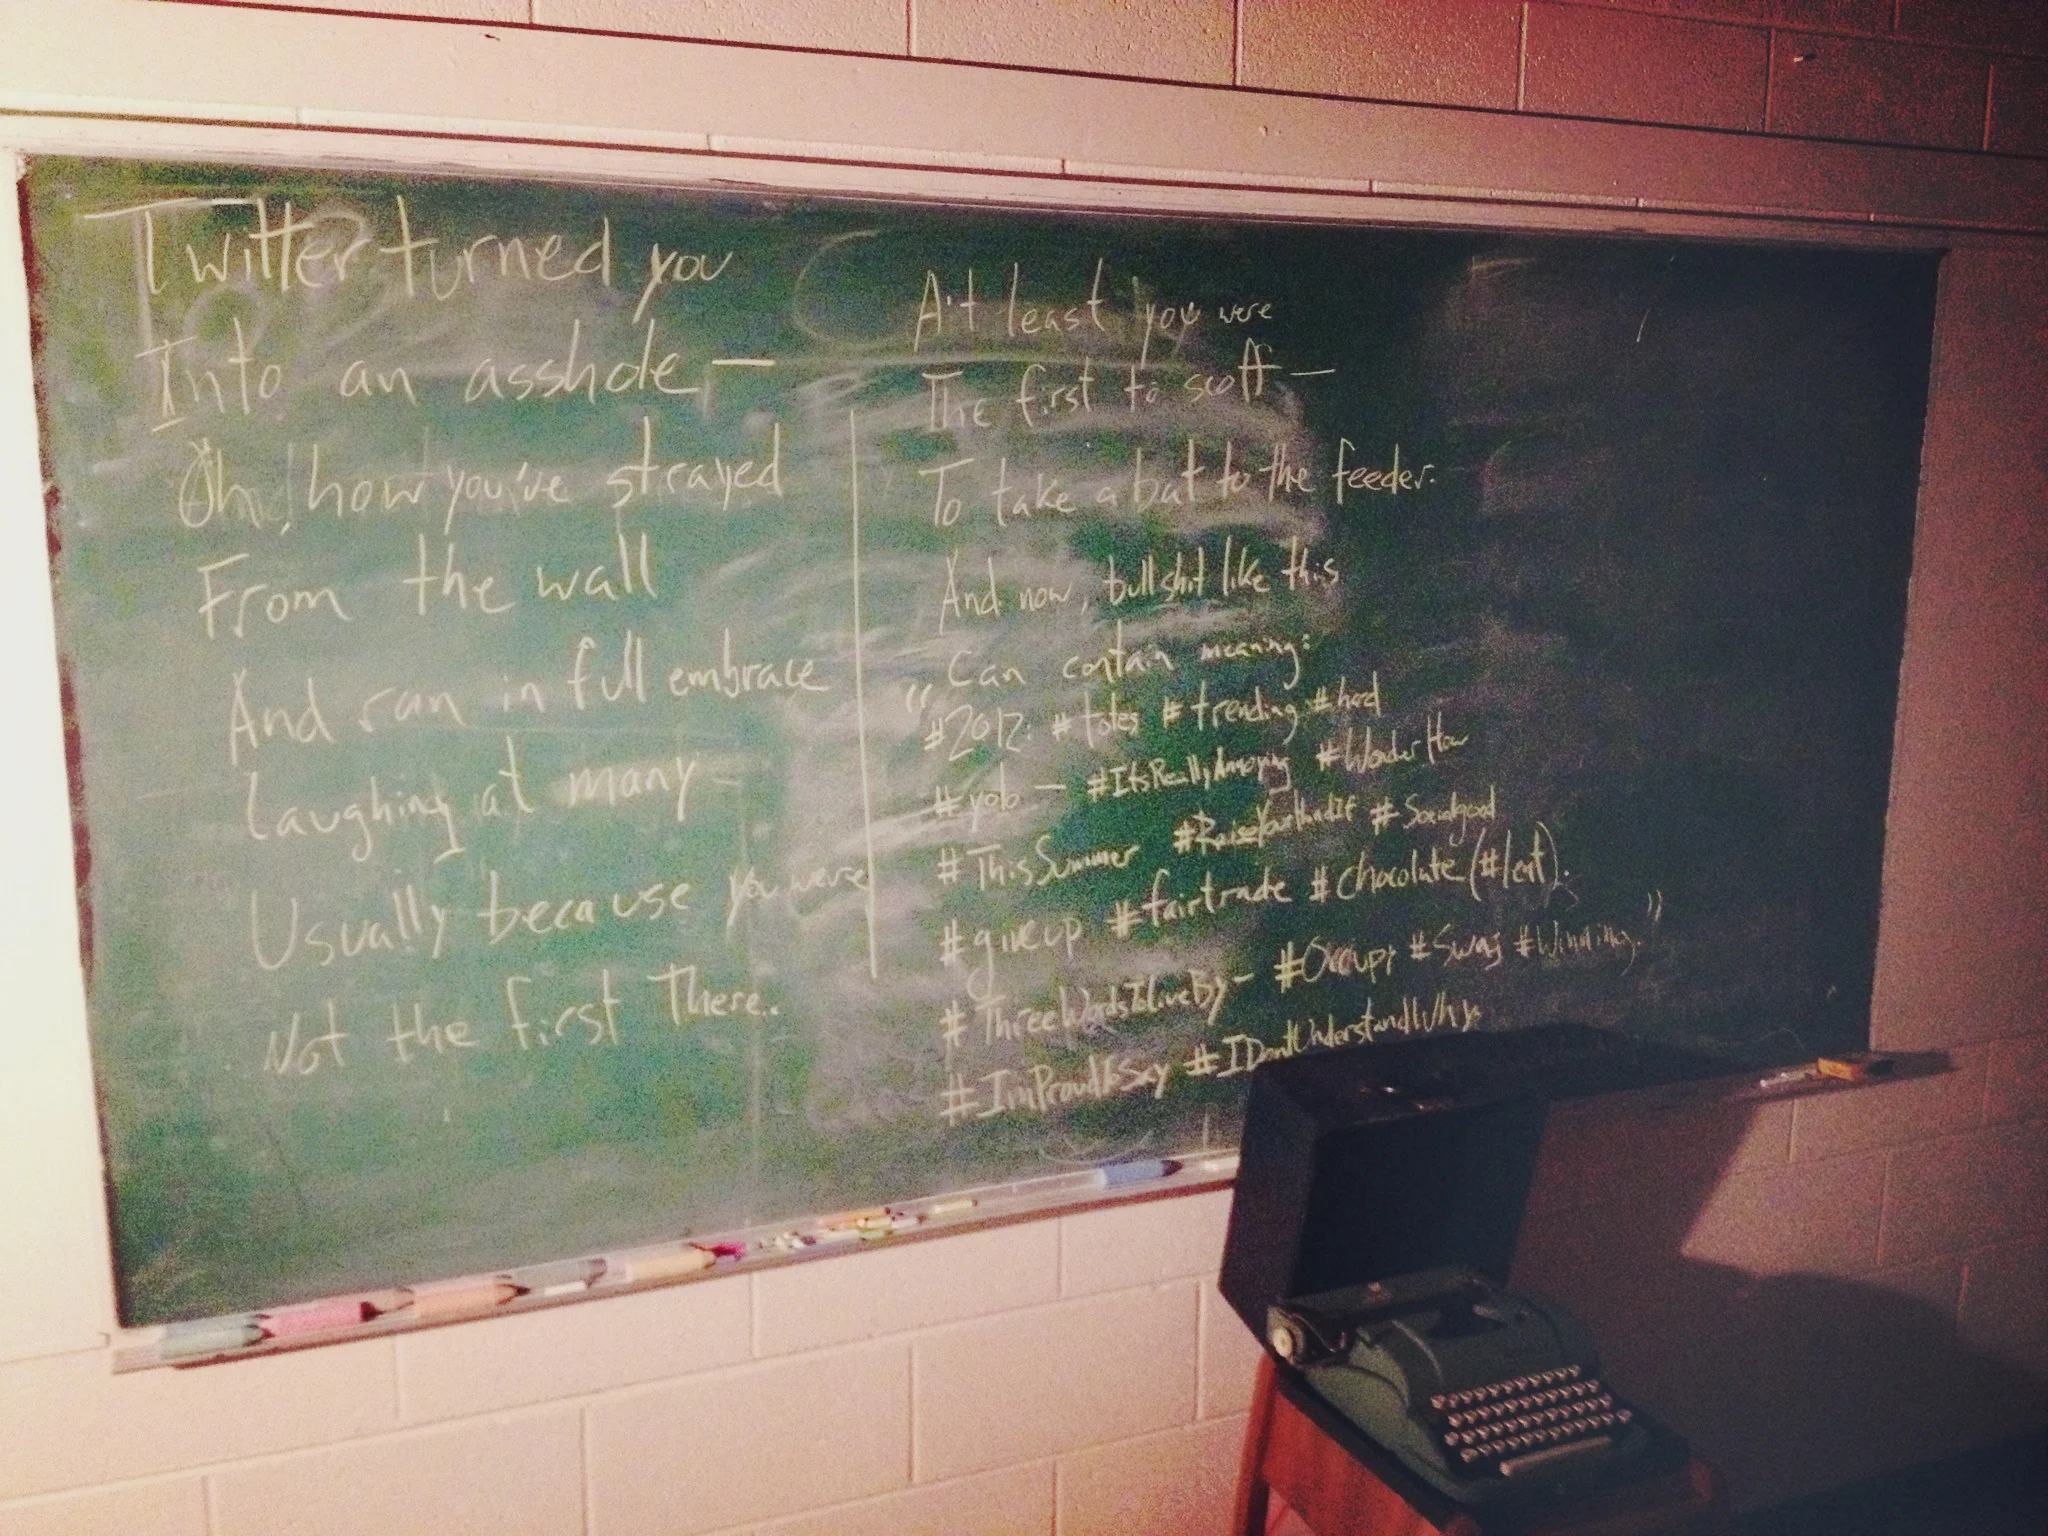 Twitter turned you
Into an asshole —
Oh, how you've strayed
From the wall
And ran in full embrace
Laughing at many
Usually because you were
Not the first There.
At least you were
The first to scoff —
To take a bat to the feeder.
And now, bullshit like this
Can contain meaning:
"#2012: #totes #trending #hard
#yolo — #ItsReallyAnnoying #WonderHow
#ThisSummer #RaiseYourHandIf #Socialgood
#giveup #fairtrade #chocolate (#lent).
#ThreeWordsToLiveBy — #Occupy #Swag #Winning."
#ImProudToSay #IDontUnderstandWhy